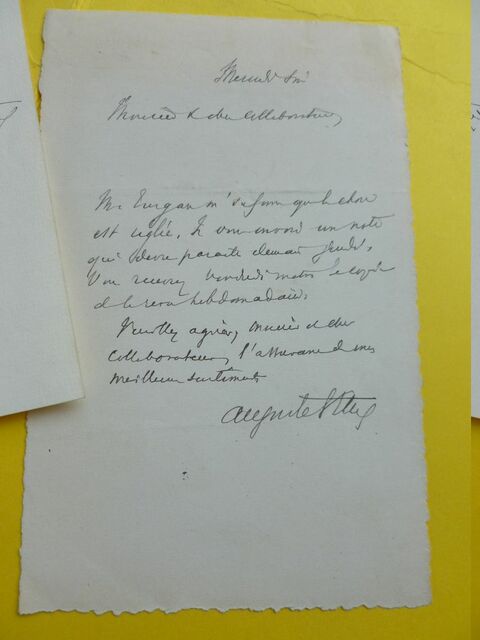 Mercredi soir
Monsieur & cher collaborateur,
Mr Turgan m'informe que la chose
est réglée. Je vous envoie une note
qui devra paraître demain Jeudi.
Vous recevrez Vendredi matin la copie
de la revue hebdomadaire.
Veuillez agréer, monsieur et cher
collaborateur, l'assurance de mes
meilleurs sentiments
Auguste